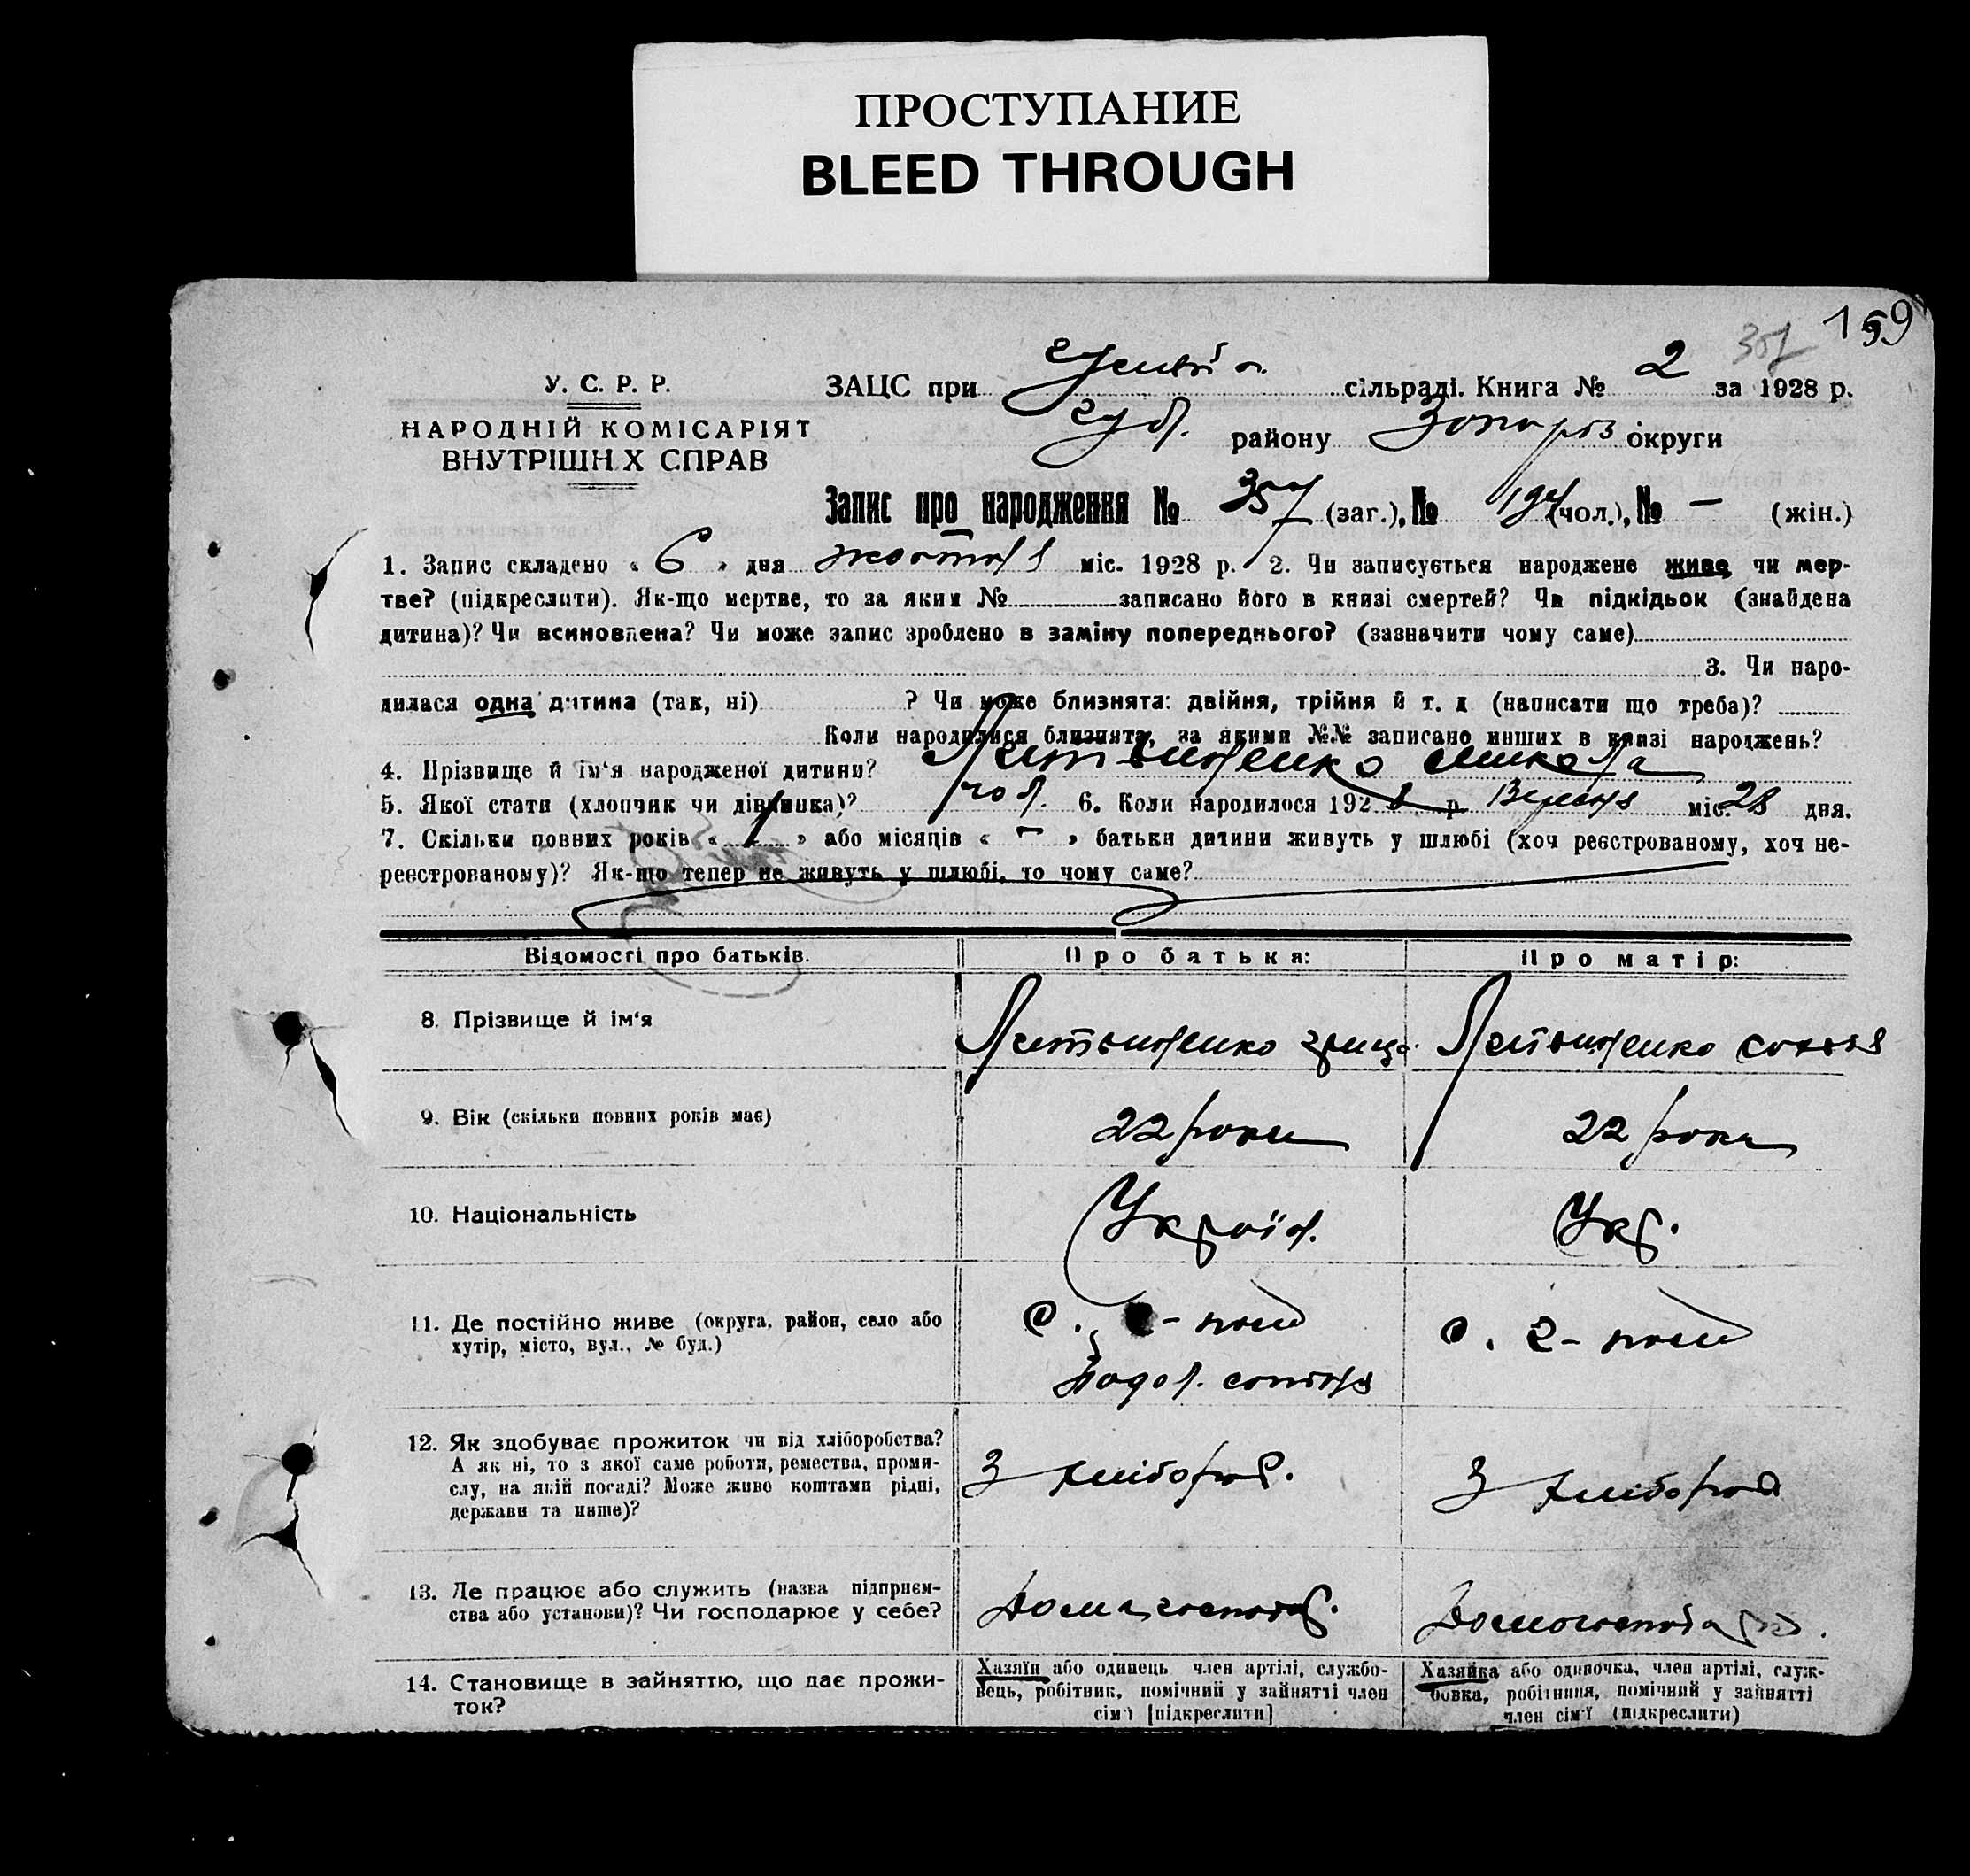 ПРОСТУПАНИЕ
BLEED THROUGH
159
357
У. С. Р. Р.
НАРОДНІЙ КОМІСАРІЯТ
ВНУТРІШНІХ СПРАВ
ЗАЦС при сільраді. Книга № 2 за 1928 р.
району Запоріз округи
Запис про народження № 357 (заг.), № 194 (чол.), № — (жін.)
1. Запис складено « 6 » дня жовтня міс. 1928 р. 2. Чи записується народжене живе чи мер-
тве? (підкреслити). Як-що мертве, то за яким № записано його в книзі смертей? Чи підкідьок (знайдена
дитина)? Чи всиновлена? Чи може запис зроблено в заміну попереднього? (зазначити чому саме)
3. Чи наро-
дилася одна дитина (так, ні) ? Чи може близнята: двійня, трійня й т. д (написати що треба)?
Коли народилися близнята, за якими №№ записано инших в книзі народжень?
4. Прізвище й ім'я народженої дитини? Литвиненко Микола
5. Якої стати (хлопчик чи дівчинка)? чол. 6. Коли народилося 1928 р. Вересня міс. 28 дня.
7. Скільки повних років « 1 » або місяців « — » батьки дитини живуть у шлюбі (хоч реєстрованому, хоч не-
реєстрованому)? Як-що тепер не живуть у шлюбі, то чому саме?
Відомості про батьків. Про батька: Про матір:
8. Прізвище й ім'я Литвиненко Гриць Литвиненко Софія
9. Вік (скільки повних років має) 22 роки 22 роки
10. Національність Україн. Укр.
11. Де постійно живе (округа, район, село або
хутір, місто, вул., № буд.) с. Г-поле с. Г-поле
сотня
12. Як здобуває прожиток чи від хліборобства?
А як ні, то з якої саме роботи, ремества, проми-
слу, на якій посаді? Може живе коштами рідні,
держави та инше)? З хлібороб. З хлібороб
13. Де працює або служить (назва підприєм-
ства або установи)? Чи господарює у себе? Дома господар. Домогосподарка.
14. Становище в зайняттю, що дає прожи-
ток?
Хазяїн або одинець член артілі, службо-
вець, робітник, помічний у зайнятті член
сім'ї [підкреслити]
Хазяйка або одиночка, член артілі, служ-
бовка, робітниця, помічний у зайнятті
член сім'ї (підкреслити)